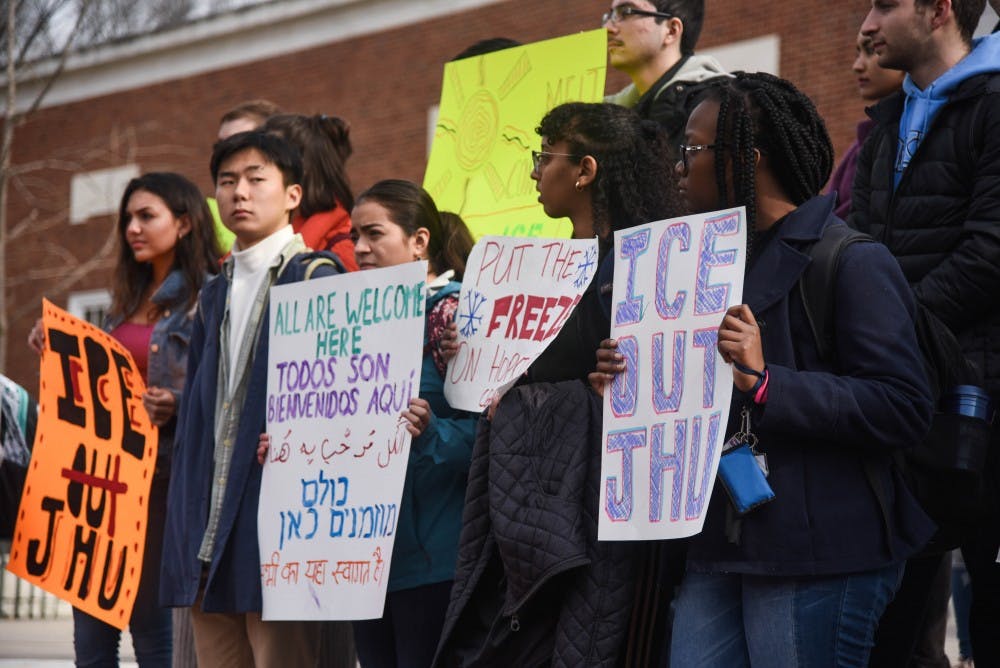 ICE
OUT
JHU
ALL ARE WELCOME
HERE
TODOS SON
BIENVENIDOS AQUÍ
الكل مُرحّب به هنا
כולם
מוזמנים כאן
सभी का यहा स्वागत है
MELT
PUT THE
FREEZE
ON
ICE
OUT
JHU